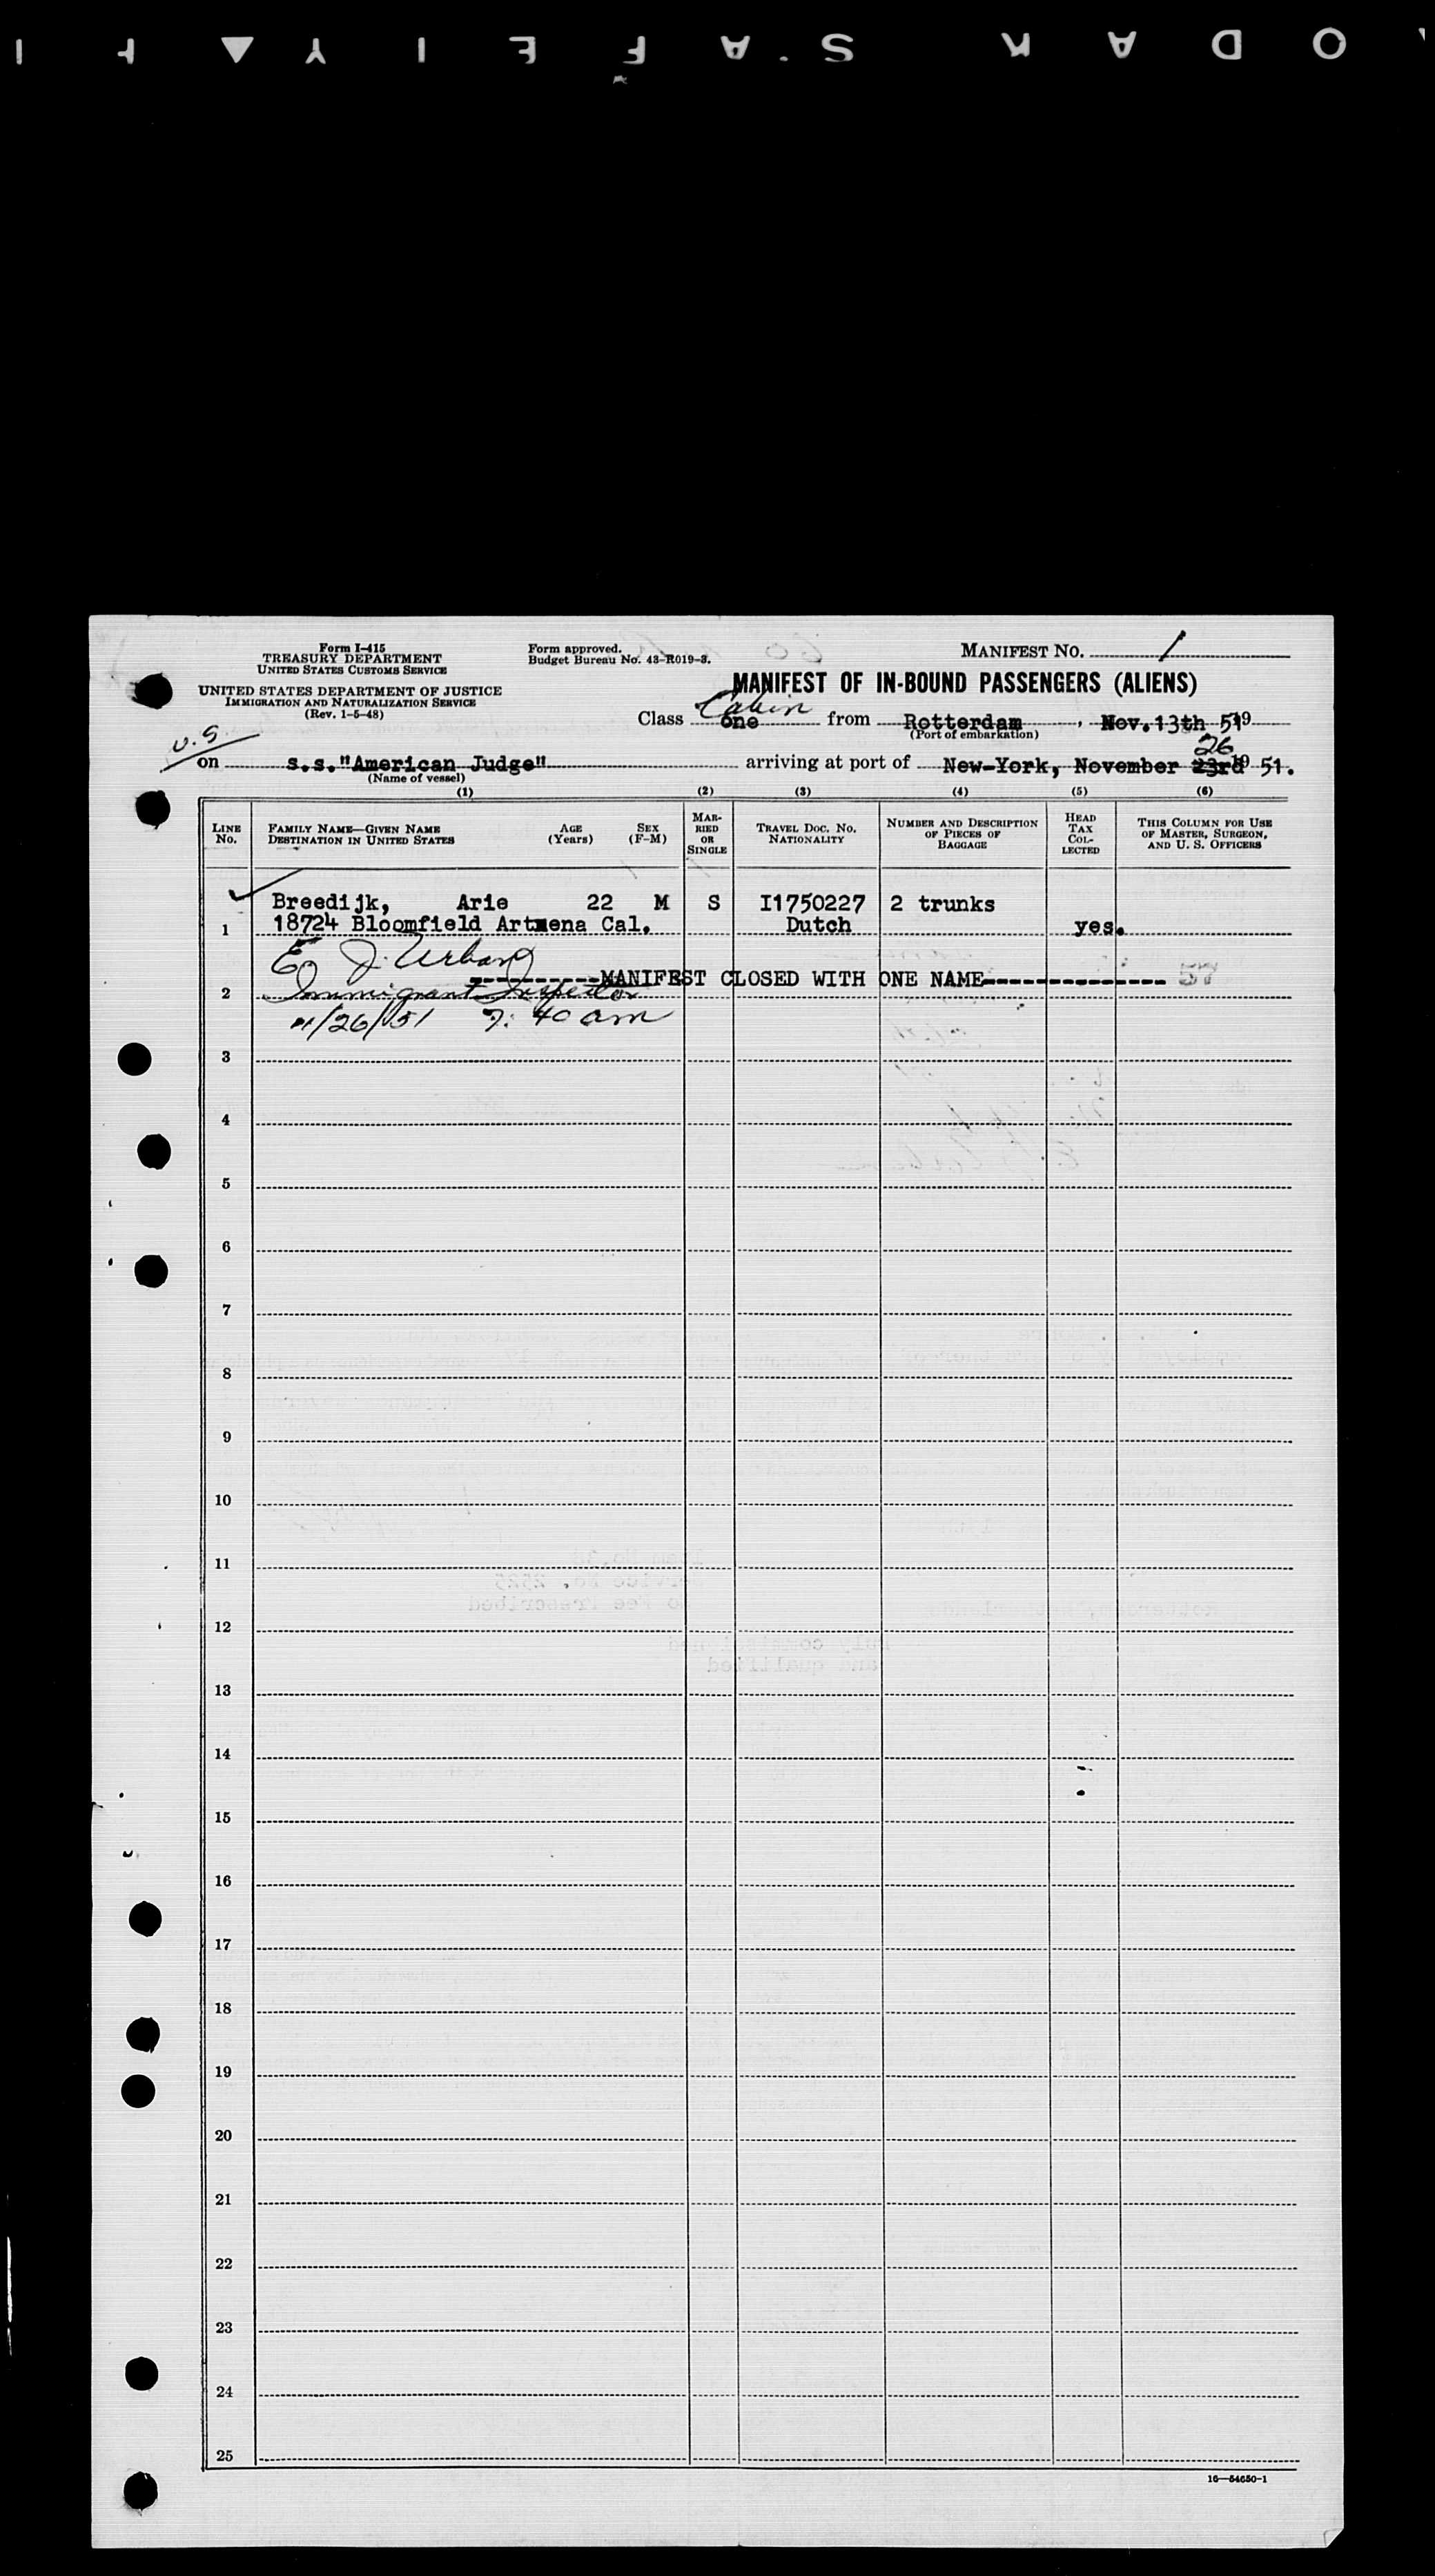 KODAK SAFETY
Form I-415
TREASURY DEPARTMENT
UNITED STATES CUSTOMS SERVICE
UNITED STATES DEPARTMENT OF JUSTICE
IMMIGRATION AND NATURALIZATION SERVICE
(Rev. 1-5-48)
Form approved.
Budget Bureau No. 43-R019-3.
MANIFEST NO. 1
MANIFEST OF IN-BOUND PASSENGERS (ALIENS)
Cabin
Class one from Rotterdam, Nov. 13th 5119
(Port of embarkation)
U.S.
26
on s.s."American Judge" arriving at port of New-York, November 23rd 19 51.
(Name of vessel)
(1) (2) (3) (4) (5) (6)
LINE NO. FAMILY NAME—GIVEN NAME DESTINATION IN UNITED STATES AGE (Years) SEX (F-M) MARRIED OR SINGLE TRAVEL DOC. NO. NATIONALITY NUMBER AND DESCRIPTION OF PIECES OF BAGGAGE HEAD TAX COLLECTED THIS COLUMN FOR USE OF MASTER, SURGEON, AND U. S. OFFICERS
Breedijk, Arie 22 M S I1750227 2 trunks
1 18724 Bloomfield Artmena Cal. Dutch yes.
E J. Urban
----------MANIFEST CLOSED WITH ONE NAME--------------- 57
2 Immigrant Inspector
11/26/51 7:40 am
3
4
5
6
7
8
9
10
11
12
13
14
15
16
17
18
19
20
21
22
23
24
25
16—54650-1